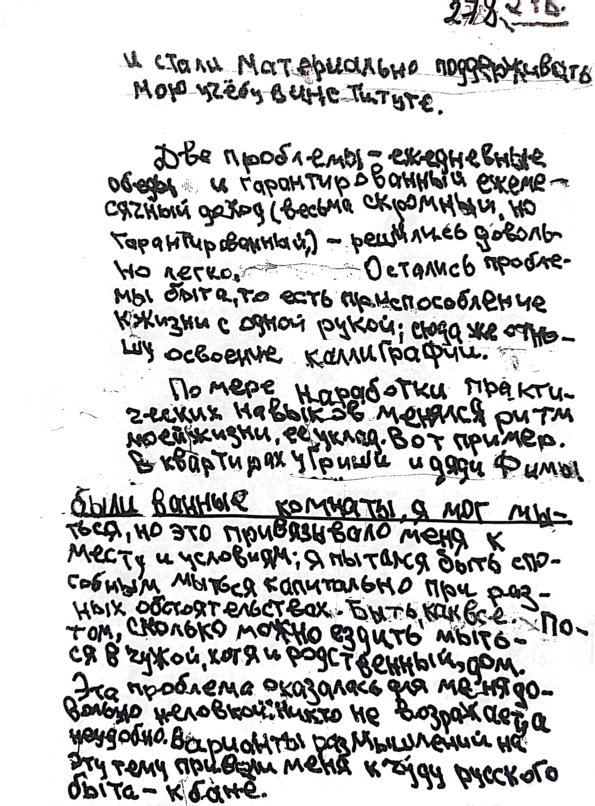 278
и стали материально поддерживать
мою учёбу в институте.
Две проблемы – ежедневные
обеды и гарантированный ежеме-
сячный доход (весьма скромный, но
гарантированный,) – решились доволь-
но легко. Остались пробле-
мы быта, то есть приспособление
к жизни с одной рукой; сюда же отно-
шу освоение каллиграфии.
По мере наработки практи-
ческих навыков менялся ритм
моей жизни, её уклад. Вот пример.
В квартирах у Гриши и дяди Фимы
были ванные комнаты, я мог мы-
ться, но это привязывало меня к
месту и условиям; я пытался быть спо-
собным мыться капитально при раз-
ных обстоятельствах. Быть, как все. По-
том, сколько можно ездить мыть-
ся в чужой, хотя и родственный, дом.
Эта проблема оказалась для меня до-
вольно неловкой: никто не возражает, а
неудобно. Варианты размышлений на
эту тему привели меня к чуду русского
быта – к бане.